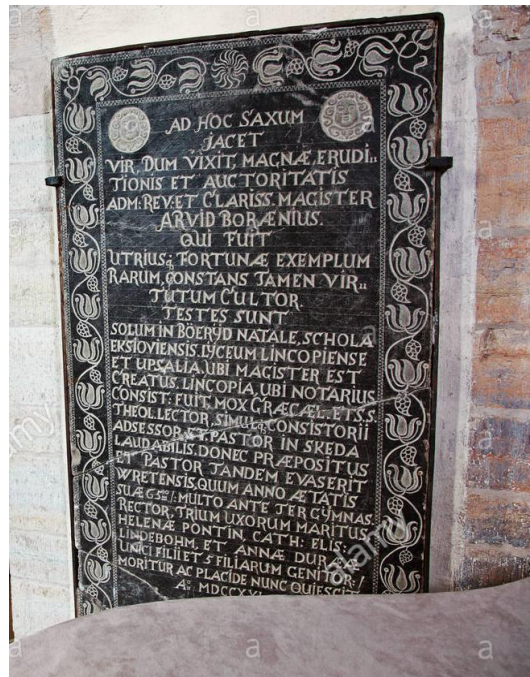 AD HOC SAXUM
JACET
VIR, DUM VIXIT, MAGNÆ, ERUDI„
TIONIS ET AUCTORITATIS
ADM: REV: ET CLARISS. MAGISTER
ARVID BORÆNIUS.
QUI FUIT
UTRIUSq; FORTUNÆ EXEMPLUM
RARUM, CONSTANS TAMEN VIR„
TUTUM CULTOR
TESTES SUNT
SOLUM IN BÖERYD NATALE, SCHOLA
EKSIOVIENSIS. LYCEUM LINCOPIENSE
ET UPSALIA, UBI MAGISTER EST
CREATUS. LINCOPIA, UBI NOTARIUS
CONSIST: FUIT, MOX GRÆCÆ L. ET S.S.
THEOL. LECTOR, SIMULq; CONSISTORII
ADSESSOR, ET PASTOR IN SKEDA
LAUDABILIS. DONEC PRÆPOSITUS
ET PASTOR TANDEM EVASERIT
WRETENSIS, QUUM ANNO ÆTATIS
SUÆ MULTO ANTE TER GYMNAS:
RECTOR, TRIUM UXORUM MARITUS,
HELENÆ PONTIN, CATH: ELIS:
LINDEBOHM, ET ANNÆ
UNICI FILII ET 5 FILIARUM GENITOR
MORITUR AC PLACIDE NUNC QUIESCIT
Ao:
alamy